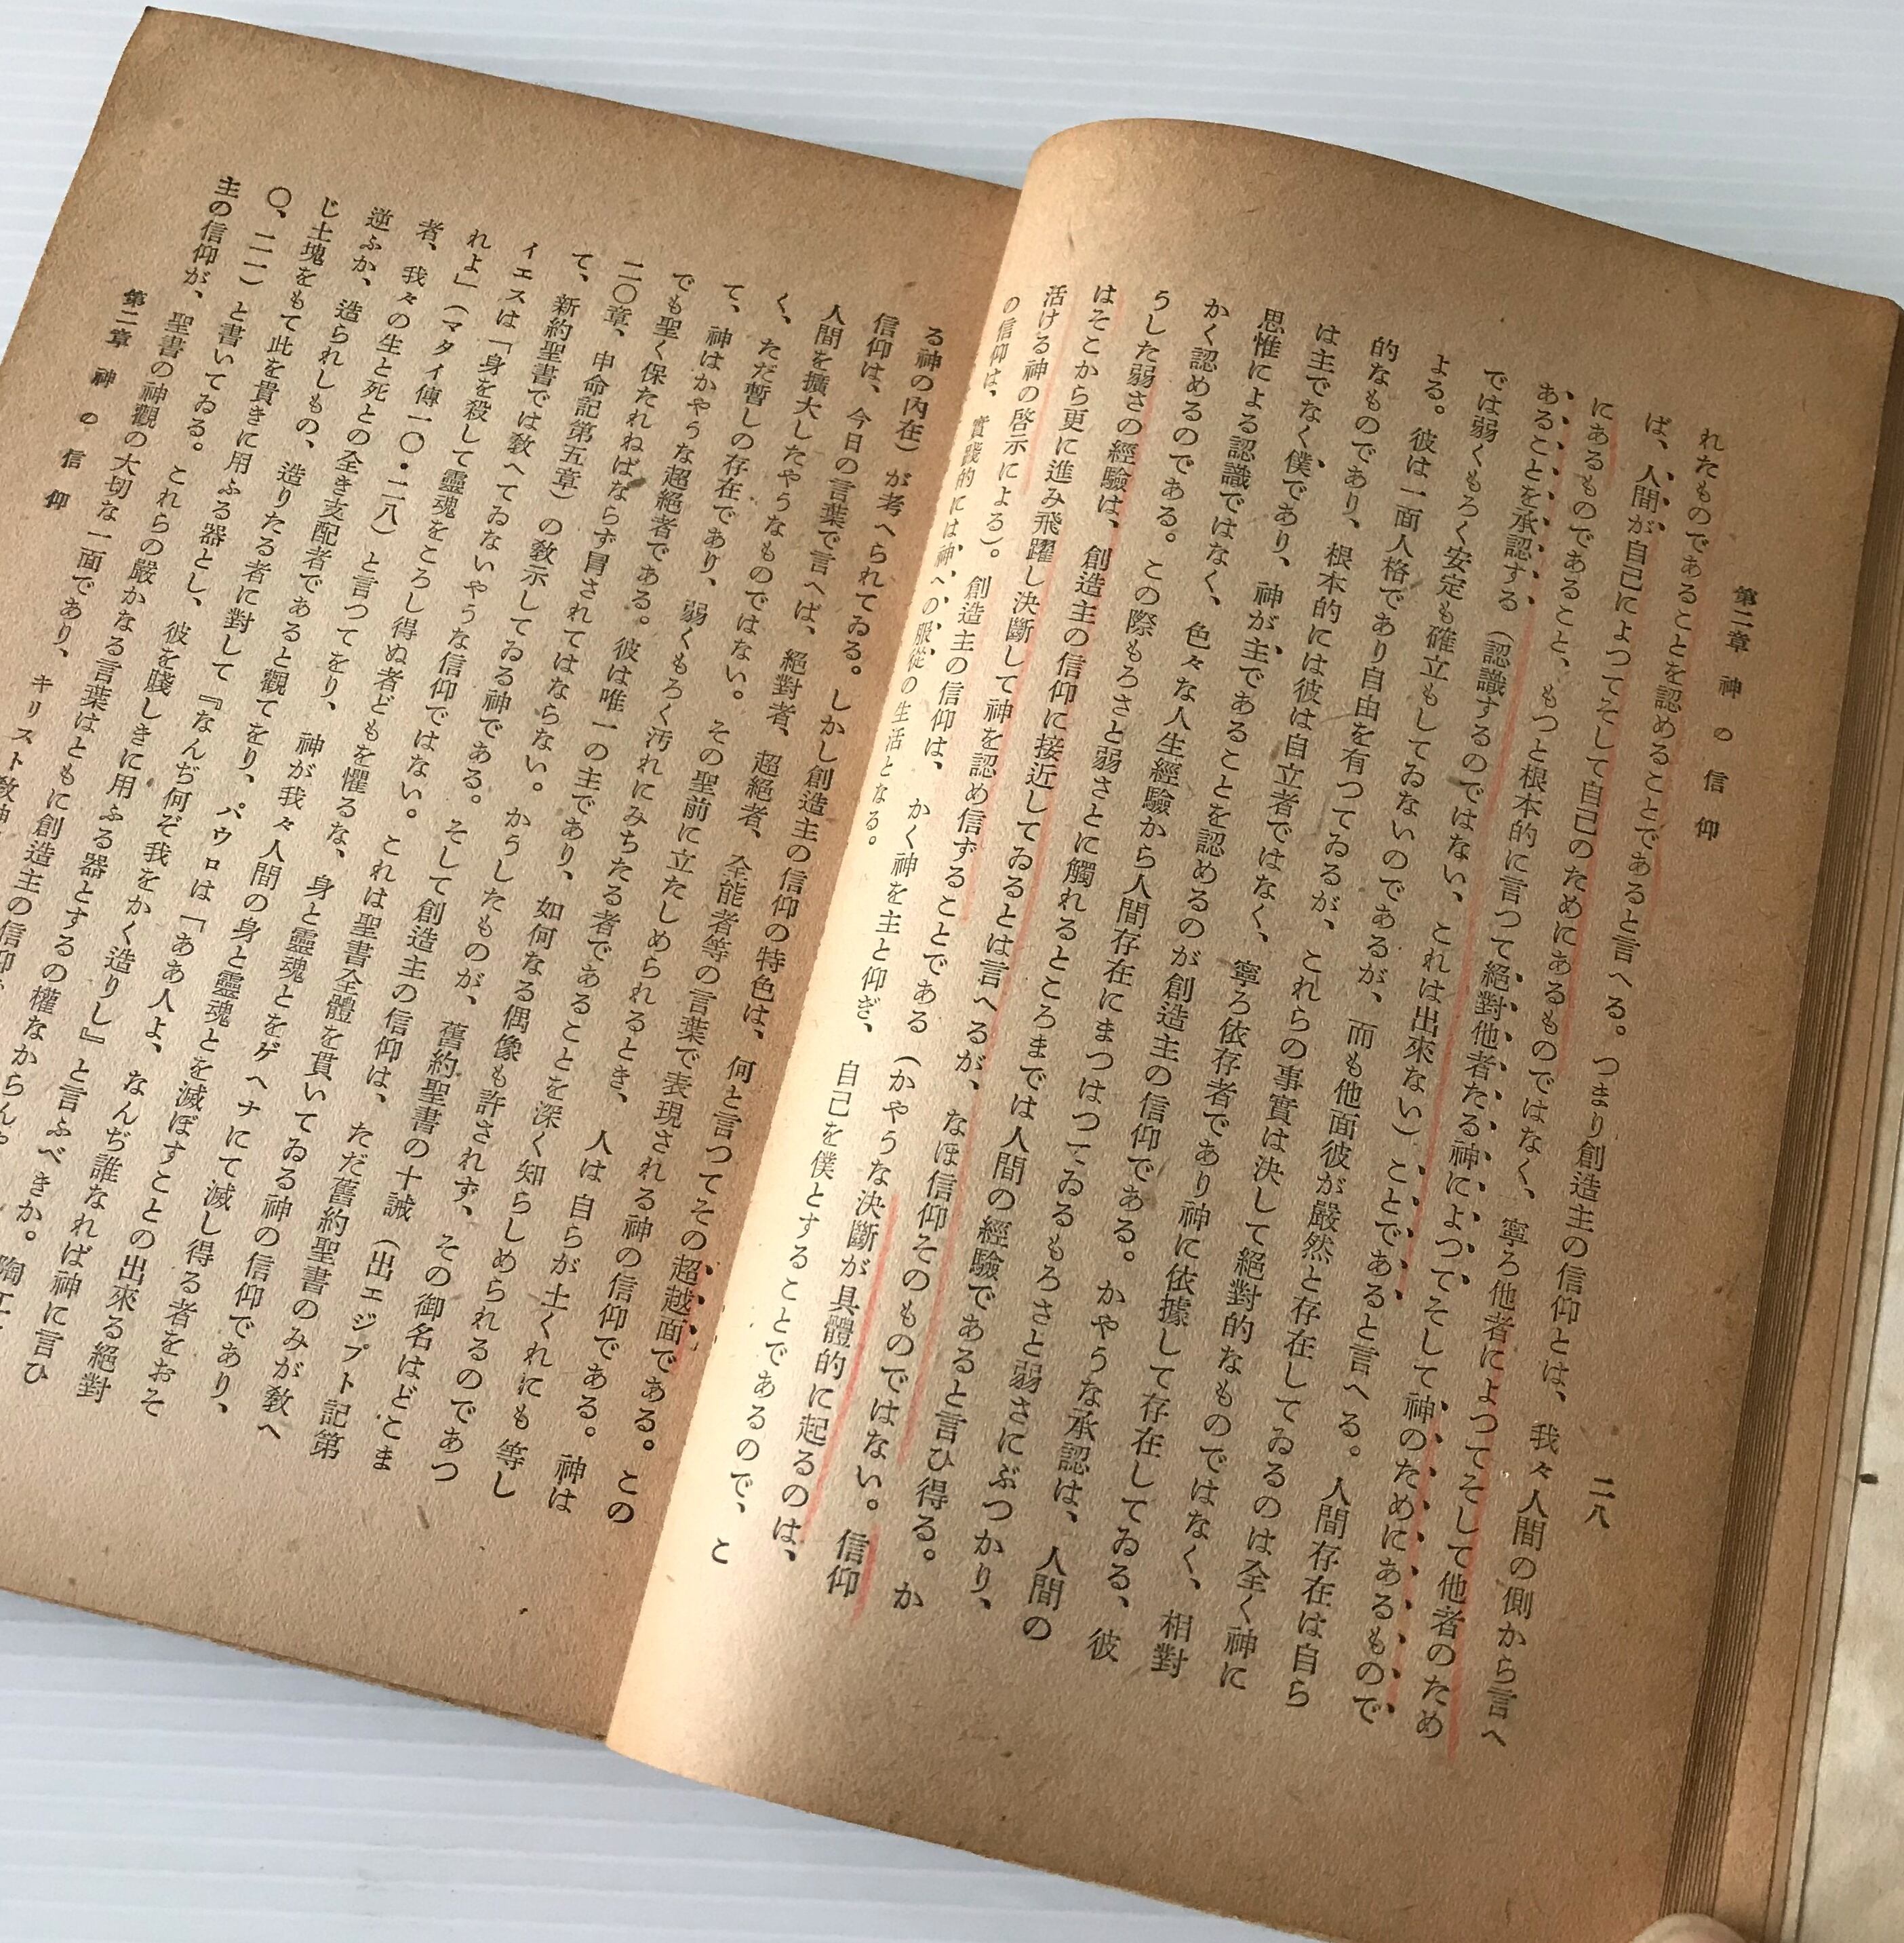 第二章 神の信仰
二八
れたものであることを認めることであると言へる。つまり創造主の信仰とは、我々人間の側から言へ
ば、人間が自己によつてそして自己のためにあるものではなく、寧ろ他者によつてそして他者のため
にあるものであること、もつと根本的に言つて絕對他者たる神によつてそして神のためにあるもので
あることを承認する（認識するのではない、これは出來ない）ことであると言へる。人間存在は自ら
では弱くもろく安定も確立もしてゐないのであるが、而も他面彼が嚴然と存在してゐるのは全く神に
よる。彼は一面人格であり自由を有つてゐるが、これらの事實は決して絕對的なものではなく、相對
的なものであり、根本的には彼は自立者ではなく、寧ろ依存者であり神に依據して存在してゐる、彼
は主でなく僕であり、神が主であることを認めるのが創造主の信仰である。かやうな承認は、人間の
思惟による認識ではなく、色々な人生經驗から人間存在にまつはつてゐるもろさと弱さにぶつかり、
かく認めるのである。この際もろさと弱さとに觸れるところまでは人間の經驗であると言ひ得る。か
うした弱さの經驗は、創造主の信仰に接近してゐるとは言へるが、なほ信仰そのものではない。信仰
はそこから更に進み飛躍し決斷して神を認め信ずることである（かやうな決斷が具體的に起るのは、
活ける神の啓示による）。創造主の信仰は、かく神を主と仰ぎ、自己を僕とすることであるので、こ
の信仰は、實踐的には神への服從の生活となる。
る神の內在）が考へられてゐる。しかし創造主の信仰の特色は、何と言つてその超越面である。この
信仰は、今日の言葉で言へば、絕對者、超絕者、全能者等の言葉で表現される神の信仰である。神は
人間を擴大したやうなものではない。その聖前に立たしめられるとき、人は自らが土くれにも等し
く、ただ暫しの存在であり、弱くもろく汚れにみちたる者であることを深く知らしめられるのであつ
て、神はかやうな超絕者である。彼は唯一の主であり、如何なる偶像も許されず、その御名はどこま
でも聖く保たれねばならず冒されてはならない。かうしたものが、舊約聖書の十誡（出エジプト記第
二〇章、申命記第五章）の敎示してゐる神である。そして創造主の信仰は、ただ舊約聖書のみが敎へ
て、新約聖書では敎へてゐないやうな信仰ではない。これは聖書全體を貫いてゐる神の信仰であり、
イエスは「身を殺して靈魂をころし得ぬ者どもを懼るな、身と靈魂とをゲヘナにて滅し得る者をおそ
れよ」（マタイ傳一〇・二八）と言つてをり、神が我々人間の身と靈魂とを滅ぼすことの出來る絕對
者、我々の生と死との全き支配者であると觀てをり、パウロは「ああ人よ、なんぢ誰なれば神に言ひ
逆ふか、造られしもの、造りたる者に對して『なんぢ何ぞ我をかく造りし』と言ふべきか。陶工は同
じ土塊をもて此を貴きに用ふる器とし、彼を賤しきに用ふる器とするの權なからんや
〇、二一）と書いてゐる。これらの嚴かなる言葉はともに創造主の信仰
主の信仰が、聖書の神觀の大切な一面であり、キリスト敎神
第二章 神の信仰